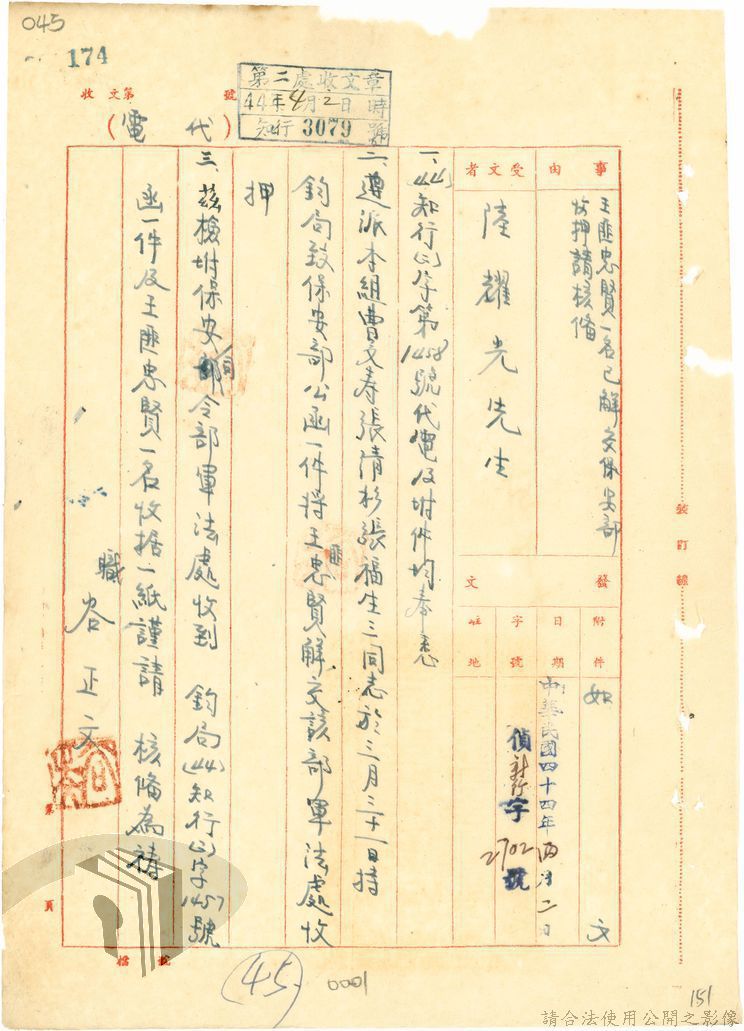 045
174
收文第 號
第二處收文章
44年4月2日 時
知行 3079 號
(代電)
事由
王匪忠賢一名已解交保安部
收押請核備
受文者
陸耀光先生
發文
附件
如文
日期
中華民國四十四年四月二日
字號
偵新行字2702號
駐地
一、(44)知行(二)字第1458號代電及坿件均奉悉
二、遵派本組曹文寿張清杉張福生三同志於三月三十一日持
鈞局致保安部公函一件將王匪忠賢解交該部軍法處收
押
三、茲檢坿保安司令部軍法處收到 鈞局(44)知行(二)字1457號
函一件及王匪忠賢一名收据一紙謹請 核備為禱
職 谷正文
裝訂線
第 頁
檔號
(45)
0001
151
請合法使用公開之影像